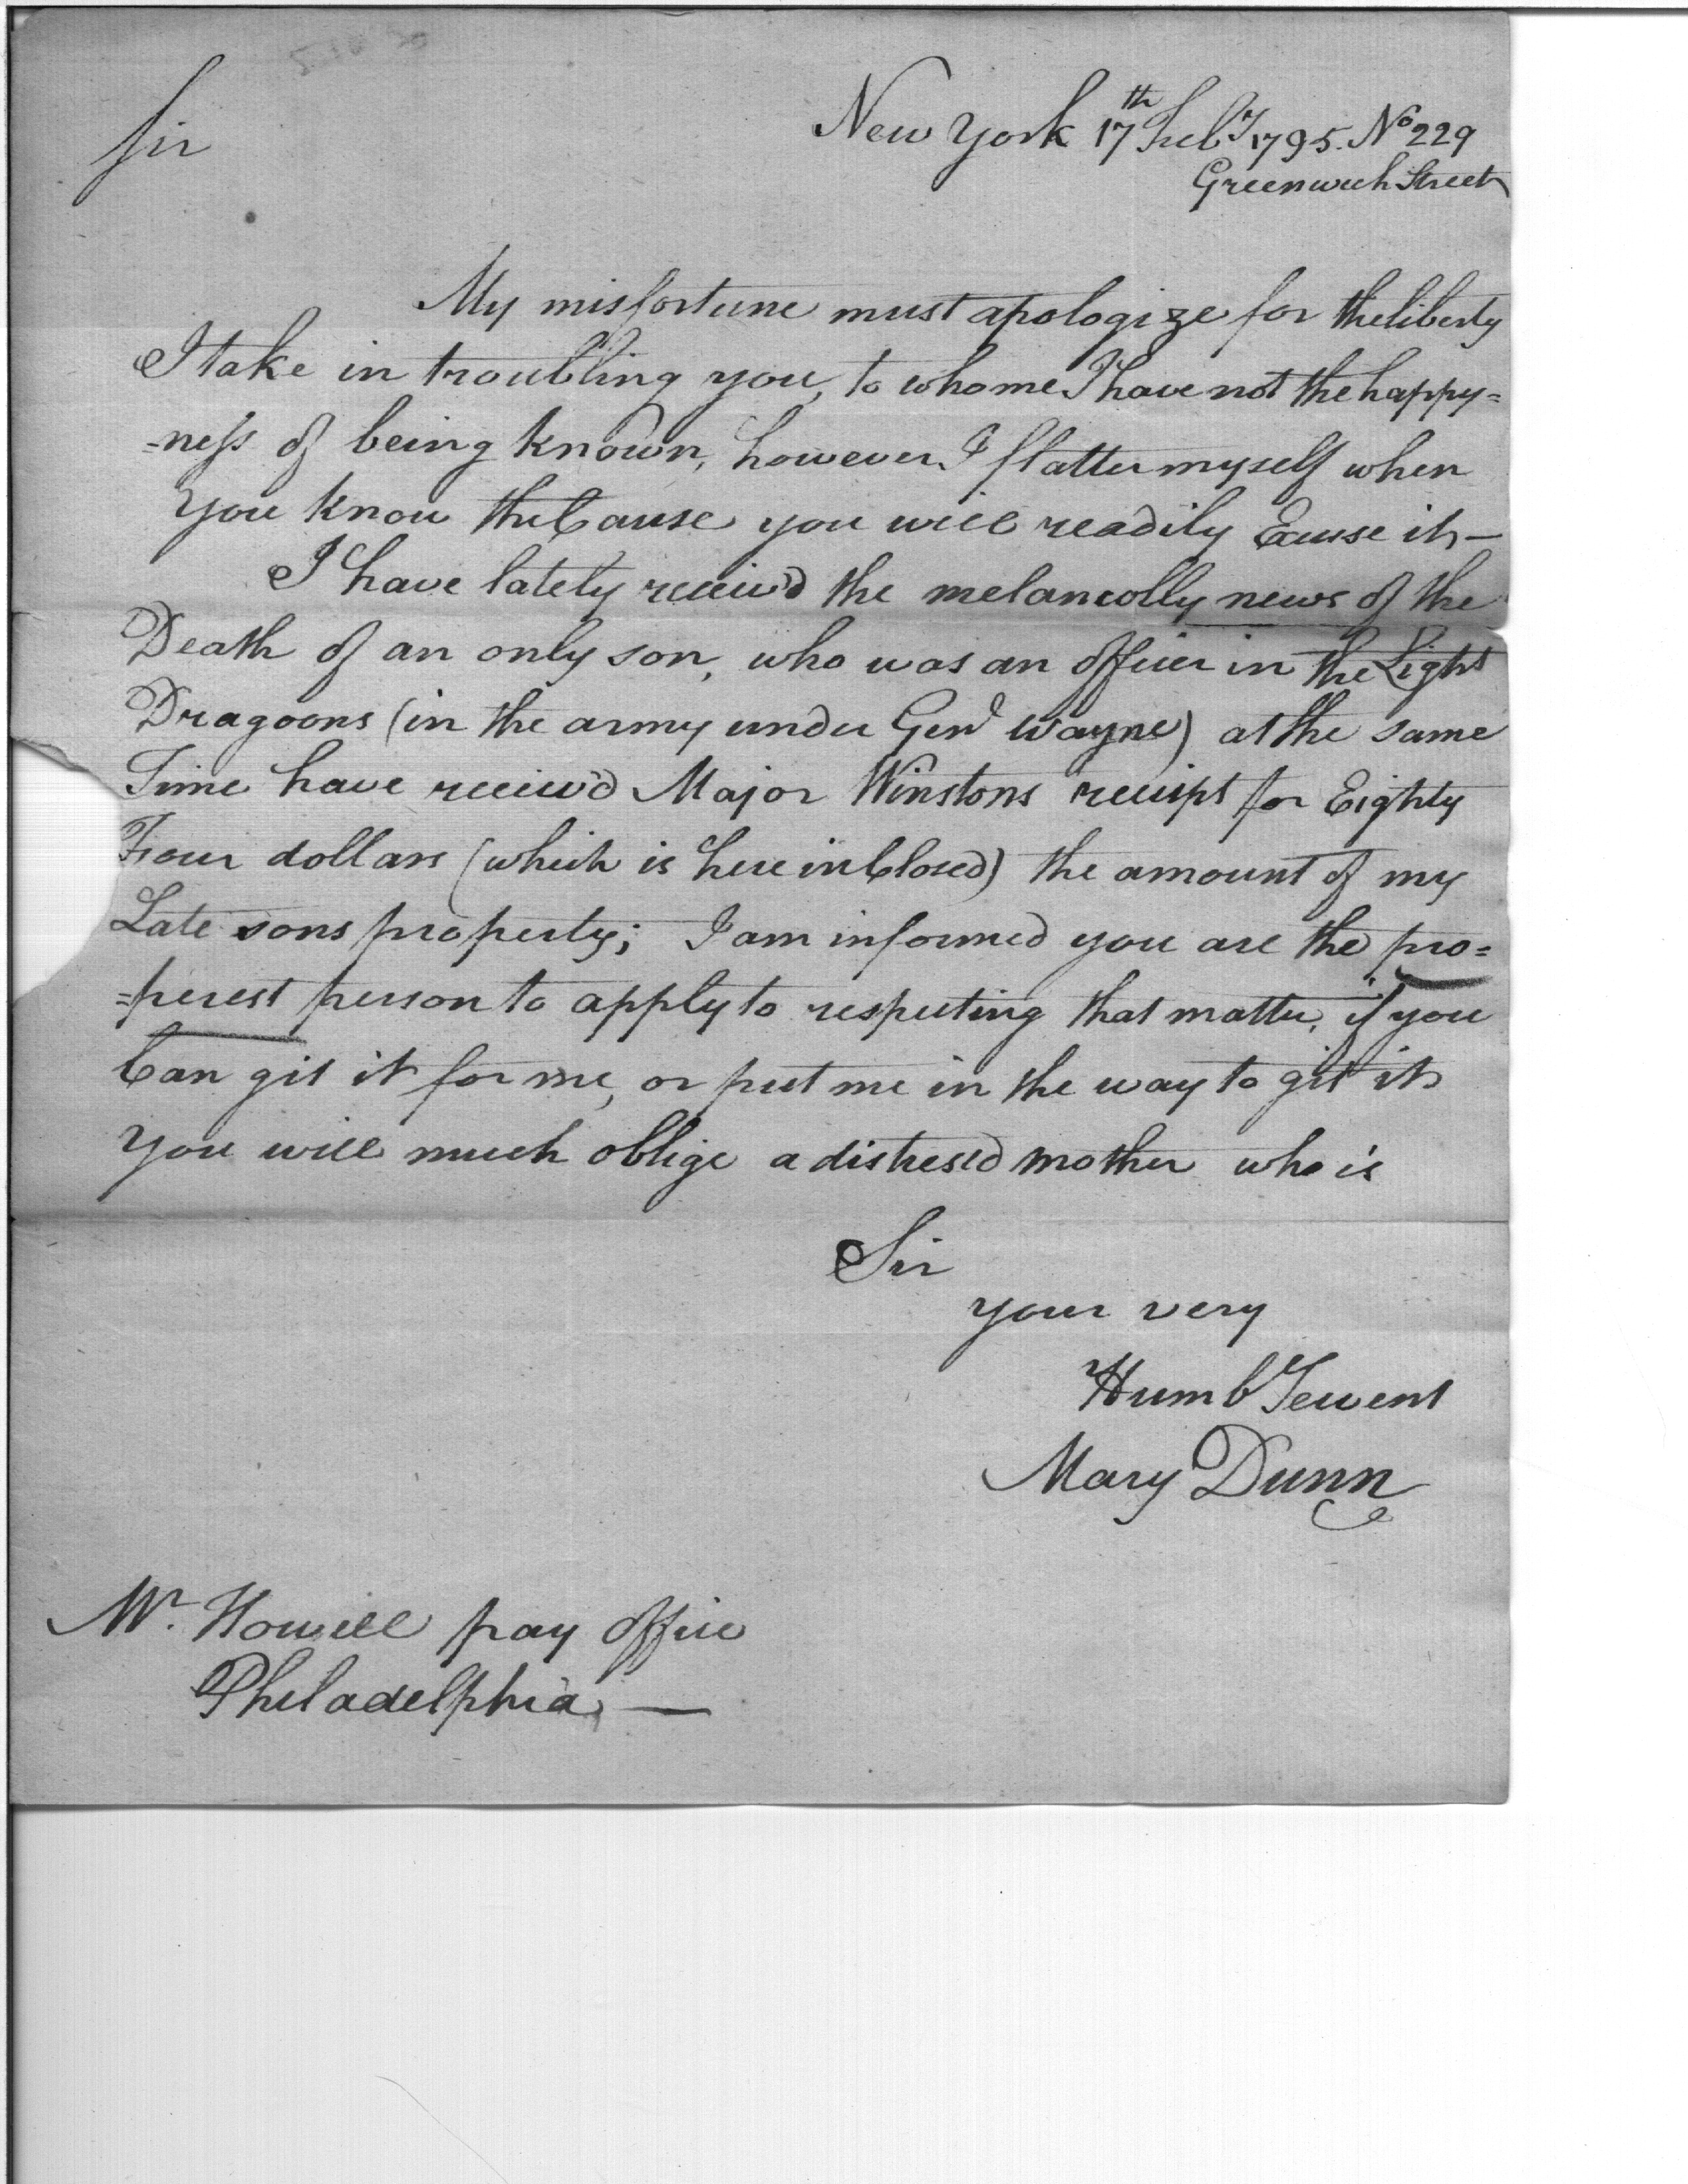 New York 17th Feby 1795. No 229
Greenwich Street
Sir
My misfortune must apologize for the liberty
I take in troubling you, to whome I have not the happy=
=ness of being known, however I flatter myself when
you know the Cause you will readily Excuse it—
I have lately receiv'd the melancolly news of the
Death of an only son, who was an officer in the Light
Dragoons (in the army under Genl Wayne) at the same
Time have receiv'd Major Winstons receipt for Eighty
Four dollars (which is here inClosed) the amount of my
Late sons property; I am informed you are the pro=
=perest person to apply to respecting that matter, if you
Can git it for me, or put me in the way to git it
you will much oblige a distresed mother who is
Sir
your very
Humb Servent
Mary Dunn
Mr. Howell pay office
Philadelphia —